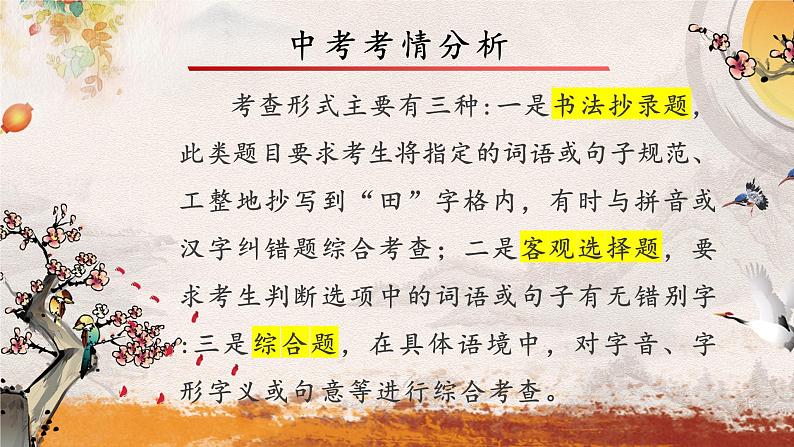 中考考情分析
考查形式主要有三种:一是书法抄录题，
此类题目要求考生将指定的词语或句子规范、
工整地抄写到“田”字格内，有时与拼音或
汉字纠错题综合考查；二是客观选择题，要
求考生判断选项中的词语或句子有无错别字
:三是综合题，在具体语境中，对字音、字
形字义或句意等进行综合考查。